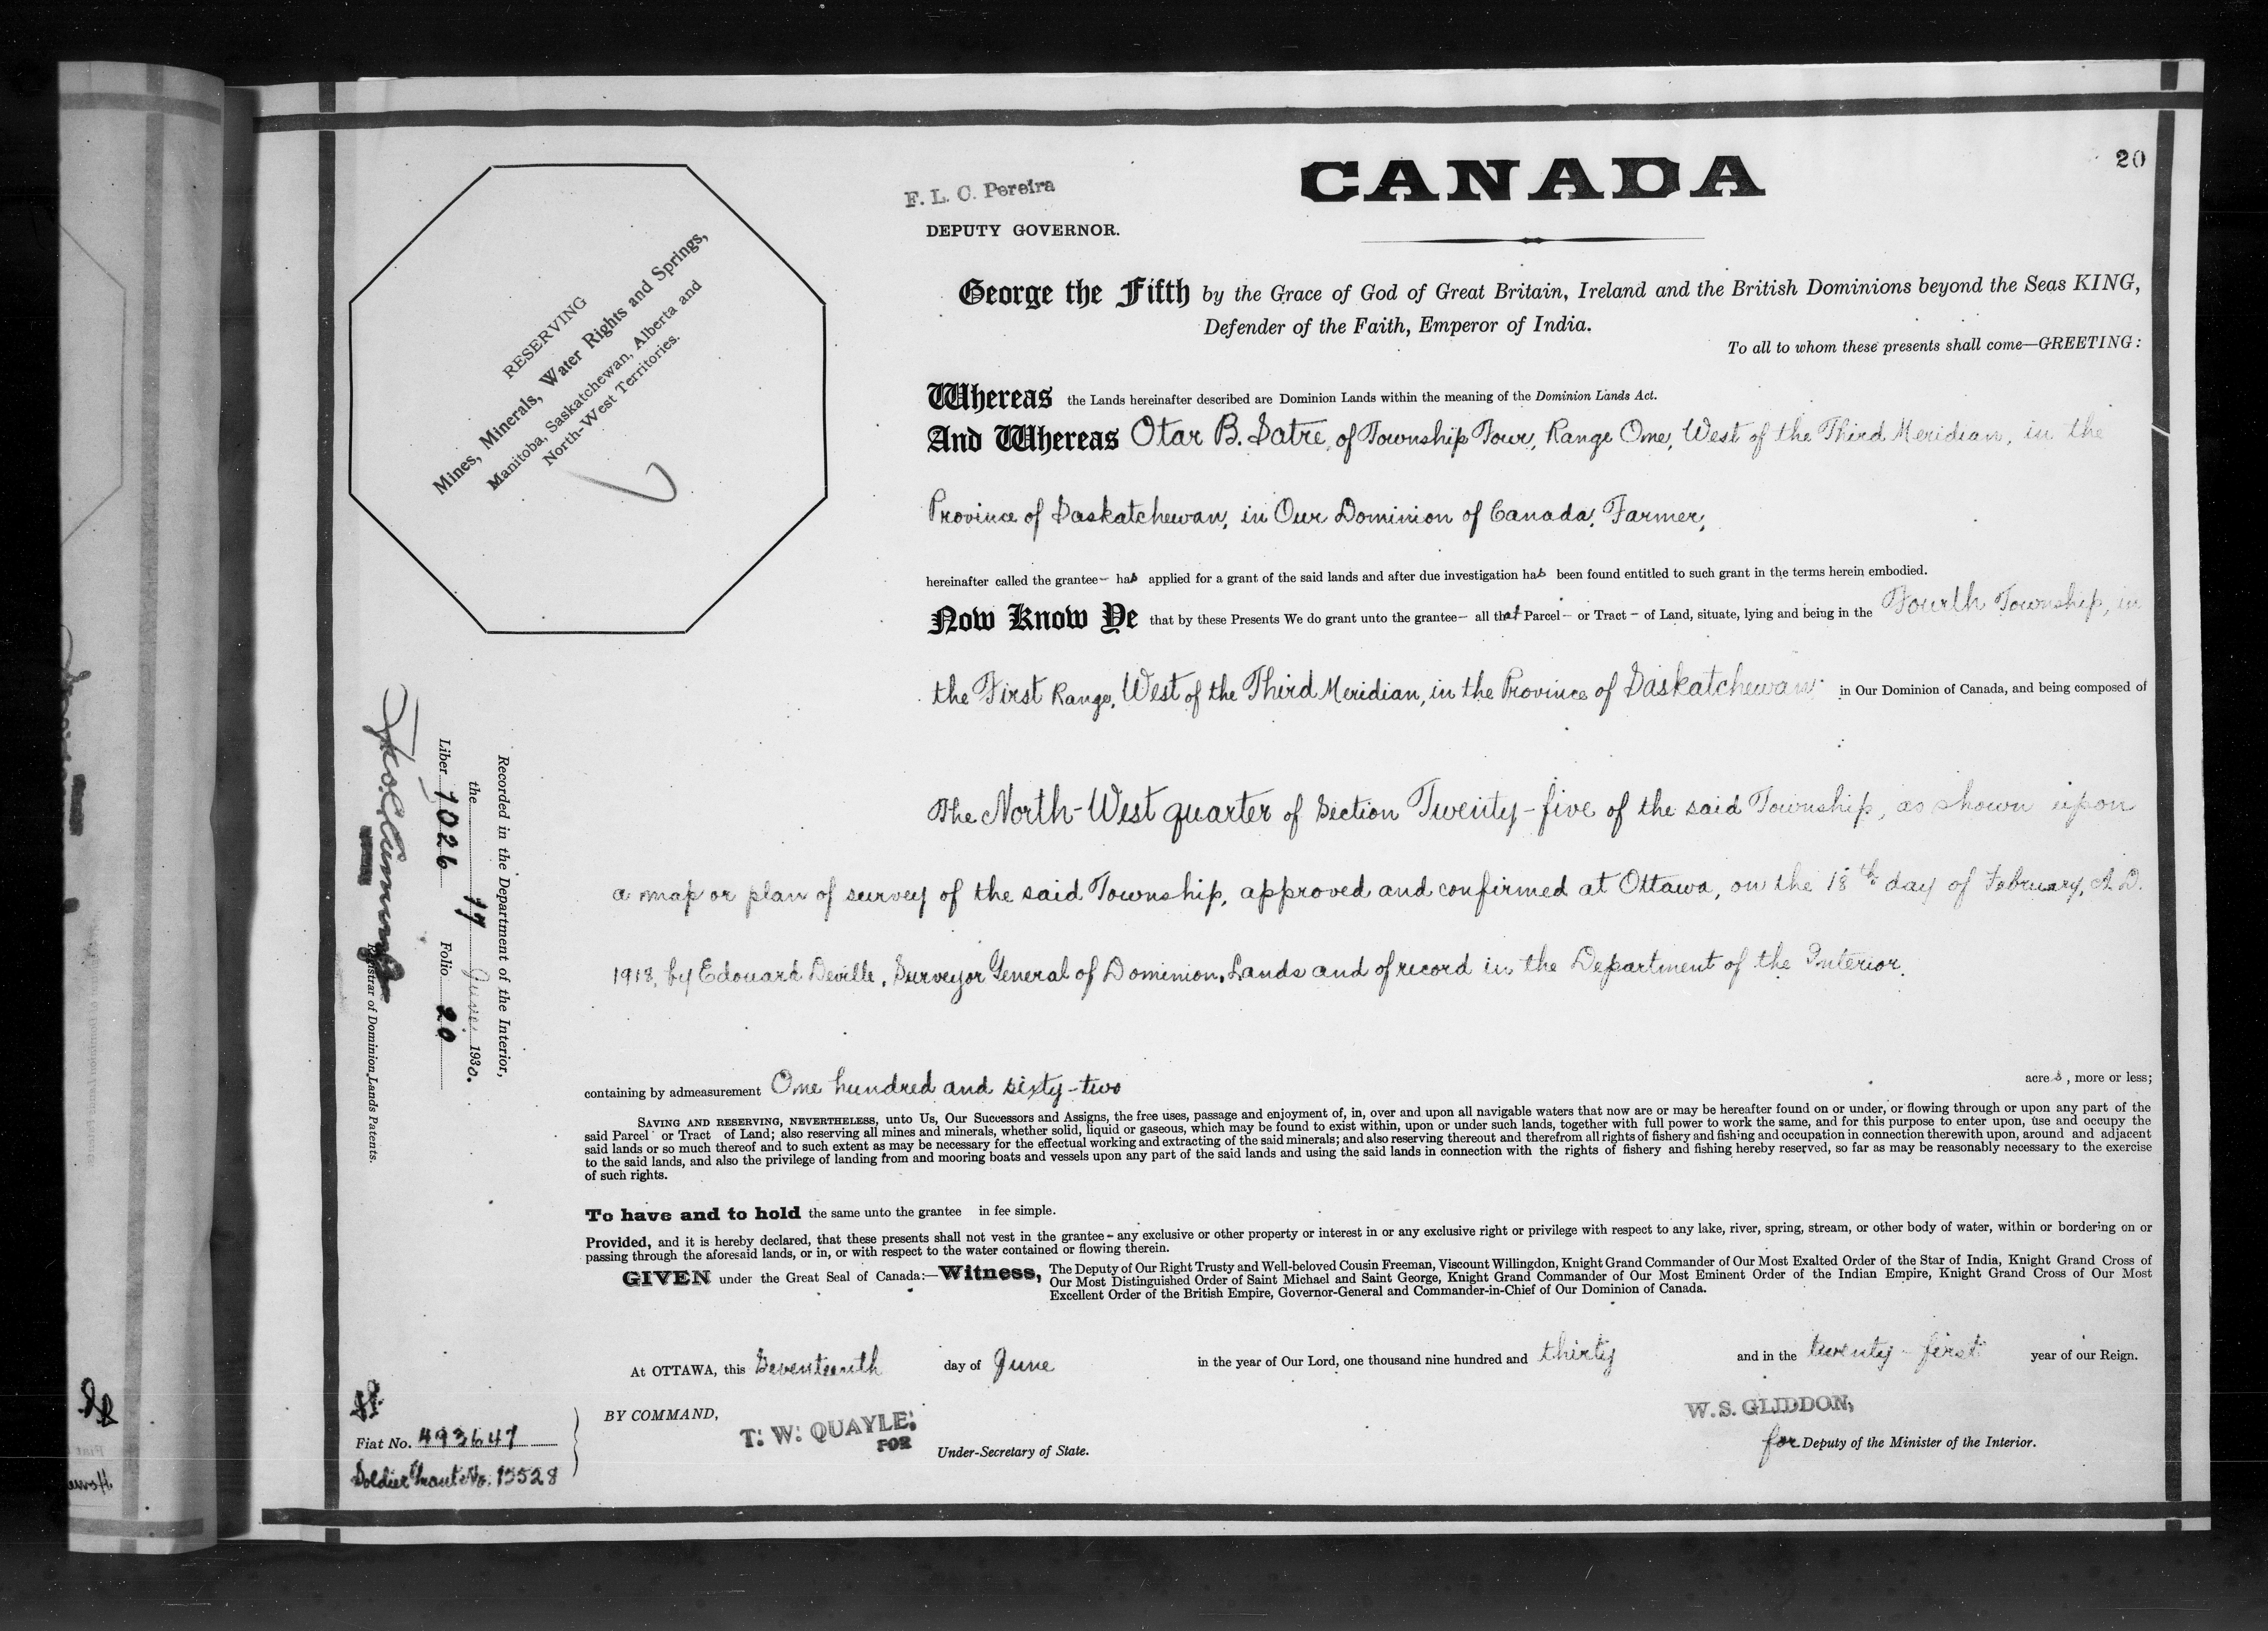 20
F. L. C. Pereira
DEPUTY GOVERNOR.
CANADA
RESERVING
Mines, Minerals, Water Rights and Springs,
Manitoba, Saskatchewan, Alberta and
North-West Territories.
George the Fifth by the Grace of God of Great Britain, Ireland and the British Dominions beyond the Seas KING,
Defender of the Faith, Emperor of India.
To all to whom these presents shall come—GREETING:
Whereas the Lands hereinafter described are Dominion Lands within the meaning of the Dominion Lands Act.
And Whereas Otar B. Satre, of Township Four, Range One, West of the Third Meridian, in the
Province of Saskatchewan, in Our Dominion of Canada, Farmer,
hereinafter called the grantee— has applied for a grant of the said lands and after due investigation has been found entitled to such grant in the terms herein embodied.
Now Know Ye that by these Presents We do grant unto the grantee— all that Parcel — or Tract — of Land, situate, lying and being in the Fourth Township, in
the First Range, West of the Third Meridian, in the Province of Saskatchewan in Our Dominion of Canada, and being composed of
The North-West quarter of Section Twenty-five of the said Township, as shown upon
a map or plan of survey of the said Township, approved and confirmed at Ottawa, on the 18th day of February, A.D.
1918, by Edouard Deville, Surveyor General of Dominion Lands and of record in the Department of the Interior.
containing by admeasurement One hundred and sixty-two acres, more or less;
SAVING AND RESERVING, NEVERTHELESS, unto Us, Our Successors and Assigns, the free uses, passage and enjoyment of, in, over and upon all navigable waters that now are or may be hereafter found on or under, or flowing through or upon any part of the
said Parcel or Tract of Land; also reserving all mines and minerals, whether solid, liquid or gaseous, which may be found to exist within, upon or under such lands, together with full power to work the same, and for this purpose to enter upon, use and occupy the
said lands or so much thereof and to such extent as may be necessary for the effectual working and extracting of the said minerals; and also reserving thereout and therefrom all rights of fishery and fishing and occupation in connection therewith upon, around and adjacent
to the said lands, and also the privilege of landing from and mooring boats and vessels upon any part of the said lands and using the said lands in connection with the rights of fishery and fishing hereby reserved, so far as may be reasonably necessary to the exercise
of such rights.
To have and to hold the same unto the grantee in fee simple.
Provided, and it is hereby declared, that these presents shall not vest in the grantee — any exclusive or other property or interest in or any exclusive right or privilege with respect to any lake, river, spring, stream, or other body of water, within or bordering on or
passing through the aforesaid lands, or in, or with respect to the water contained or flowing therein.
GIVEN under the Great Seal of Canada:—Witness, The Deputy of Our Right Trusty and Well-beloved Cousin Freeman, Viscount Willingdon, Knight Grand Commander of Our Most Exalted Order of the Star of India, Knight Grand Cross of
Our Most Distinguished Order of Saint Michael and Saint George, Knight Grand Commander of Our Most Eminent Order of the Indian Empire, Knight Grand Cross of Our Most
Excellent Order of the British Empire, Governor-General and Commander-in-Chief of Our Dominion of Canada.
At OTTAWA, this Seventeenth day of June in the year of Our Lord, one thousand nine hundred and thirty and in the twenty-first year of our Reign.
BY COMMAND,
T. W. QUAYLE,
FOR
Under-Secretary of State.
W. S. GLIDDON,
for Deputy of the Minister of the Interior.
Recorded in the Department of the Interior,
the 17 June 1930.
Liber 1026 Folio 20
Registrar of Dominion Lands Patents.
Fiat No. 493647
Soldier Grant No. 15528